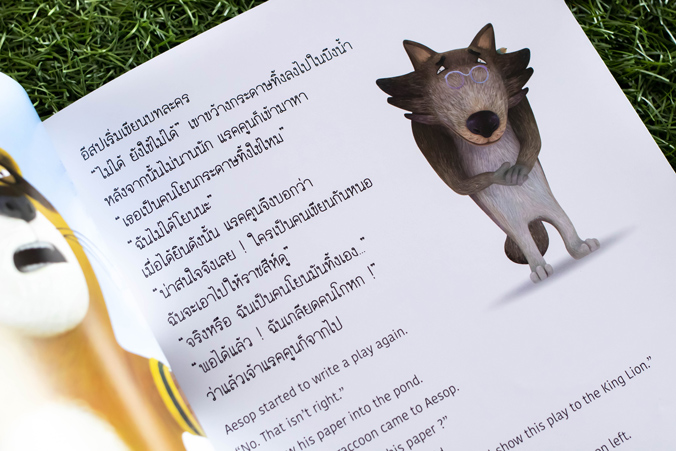 อีสปเริ่มเขียนบทละคร
"ไม่ได้ ยังใช้ไม่ได้" เขาขว้างกระดาษทิ้งลงไปในบึงน้ำ
หลังจากนั้นไม่นานนัก แรคคูนก็เข้ามาหา
"เธอเป็นคนโยนกระดาษทิ้งใช่ไหม"
"ฉันไม่ได้โยนนะ"
เมื่อได้ยินดังนั้น แรคคูนจึงบอกว่า
"น่าสนใจจังเลย ! ใครเป็นคนเขียนกันหนอ
ฉันจะเอาไปให้ราชสีห์ดู"
"จริงหรือ ฉันเป็นคนโยนมันทิ้งเอง..."
"พอได้แล้ว ! ฉันเกลียดคนโกหก !"
ว่าแล้วเจ้าแรคคูนก็จากไป
Aesop started to write a play again.
"No. That isn't right."
his paper into the pond.
raccoon came to Aesop.
his paper ?"
I show this play to the King Lion."
left.